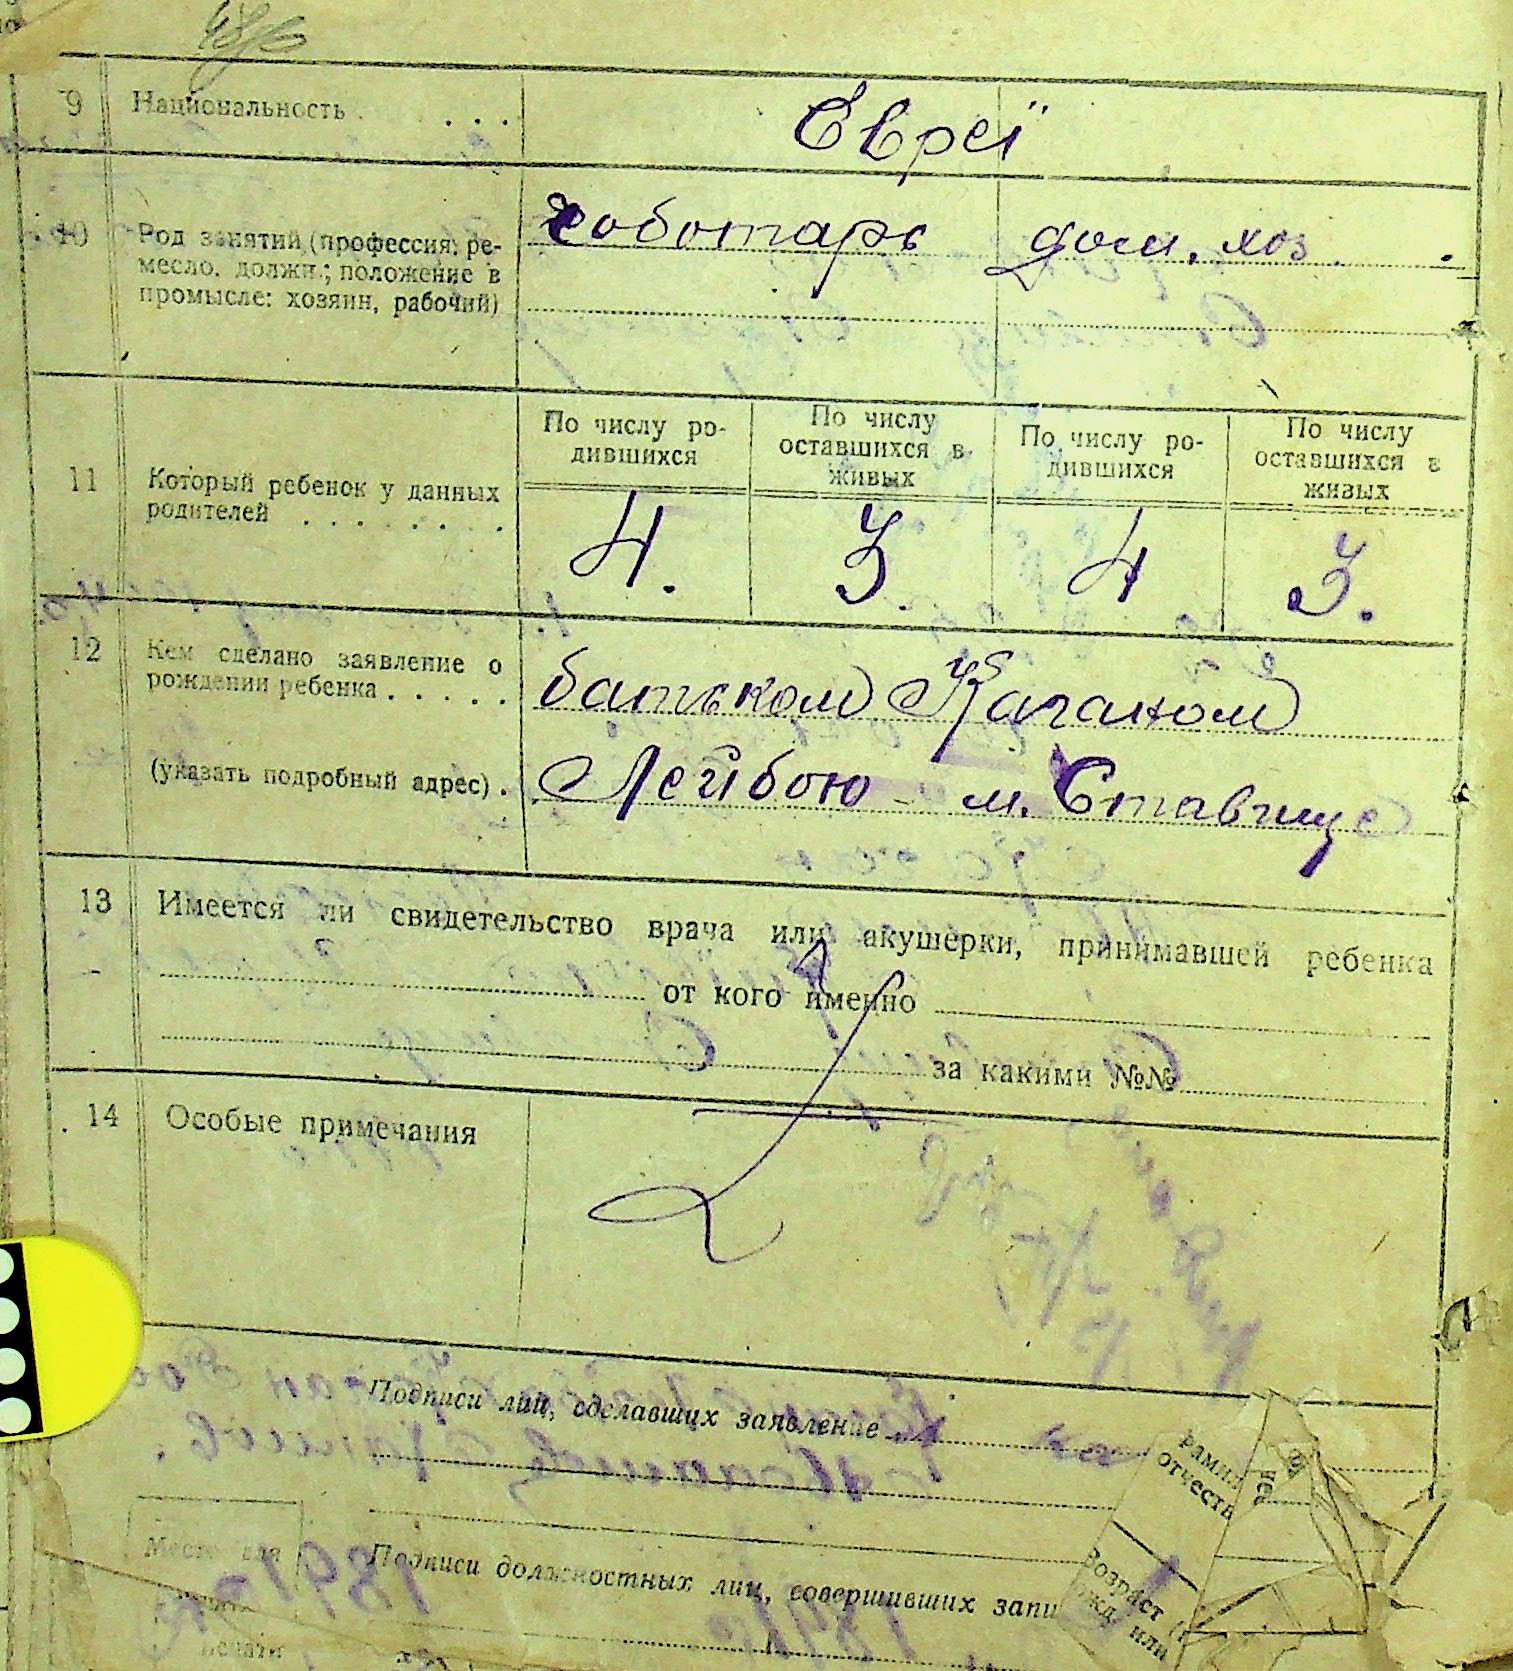 9 Национальность . . . . Євреї
10 Род занятий (профессия, ре-
месло, должн.; положение в
промысле: хозяин, рабочий)
чоботарь дом. хоз.
11 Который ребенок у данных
родителей . . . . . . . .
По числу ро-
дившихся
По числу
оставшихся в
живых
По числу ро-
дившихся
По числу
оставшихся в
живых
4. 3. 4 3.
12 Кем сделано заявление о
рождении ребенка . . . . .
(указать подробный адрес) .
батьком Каганом
Лейбою м. Ставище
13 Имеется ли свидетельство врача или акушерки, принимавшей ребенка
от кого именно
за какими №№
14 Особые примечания
Подписи лиц, сделавших заявление
Место для
печати
Подписи должностных лиц, совершивших запи
отчеств
Возраст
или